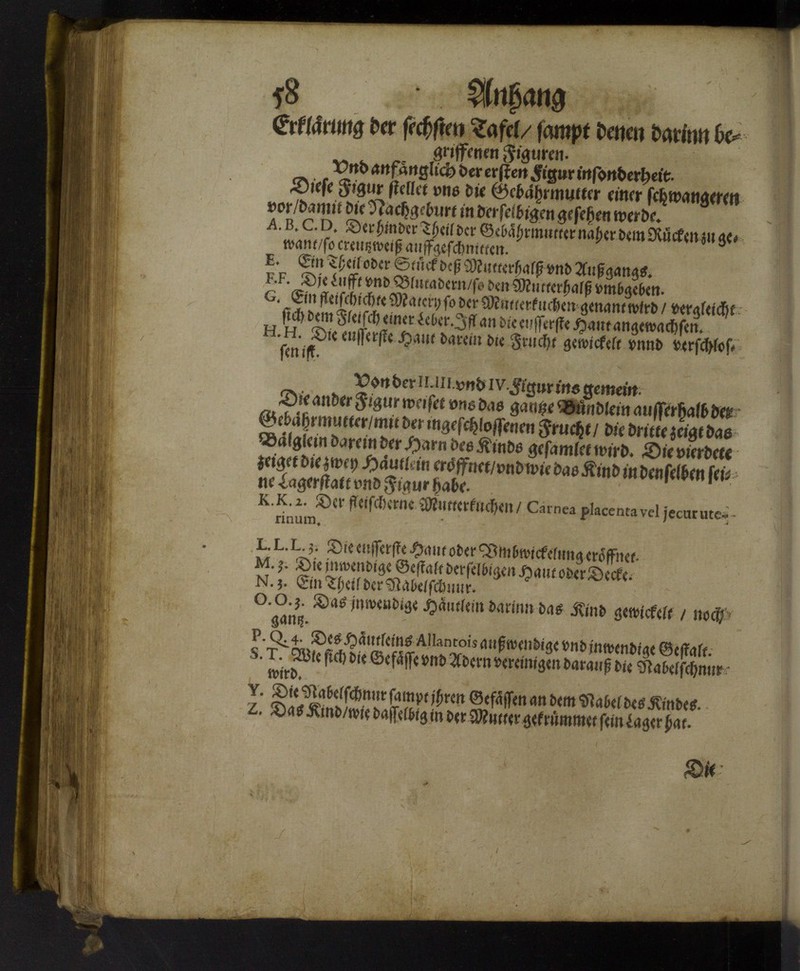 58 Anhang
Erklärung der sechsten Tafel/ sampt denen darinn be-
griffenen Figuren.
Vnd anfänglich der ersten Figur insonderheit.
Diese Figur stellet vns die Gebährmutter einer schwangeren
vor/damit die Nachgeburt in derselbigen gesehen werde.
A. B. C. D. Der hinder Theil der Gebährmutter naher dem Rücken zu ge-
want/so creutzweiß auffgeschnitten.
E. Ein Theil oder Stück deß Mutterhalß vnd Außgangs.
F.F. Die Lufft vnd Blutadern/so den Mutterhalß vmbgeben.
G. Ein fleischichte Matery so der Mutterkuchen genant wird / vergleicht
sich dem Fleisch einer Leber. Ist an die eusserste Haut angewachsen.
H. H. Die eusserste Haut darein die Frucht gewickelt vnnd verschlos-
sen ist.
Von der II.III.vnd IV.Figur ins gemein.
Die ander Figur weiset vns das gantze Bündlein ausserhalb der
Gebährmutter/mit der ingeschlossenen Frucht/ die dritte zeigt das
Bälglein darein der Harn des Kinds gesamlet wird. Die vierdete
zeiget die zwey Häutlein eröffnet/vnd wie das Kind in denselben sei-
ne Lagerstatt vnd Figur habe.
K.K.2. Der fleischerne Mutterkuchen/ Carnea placenta vel jecur ute-
rinum.
L.L.L.3. Die eusserste Haut oder Vmbwickelung eröffnet.
M.3. Die jnwendige Gestalt derselbigen Haut oder Decke.
N.3. Ein Theil der Nabelschnur.
O.O.3. Das jnwendige Häutlein darinn das Kind gewickelt / noch
gantz.
P.Q.4. Des Häutleins Allantois außwendige vnd inwendige Gestalt.
S.T. Wie sich die Gefässe vnd Adern vereinigen darauß die Nabelschnur
wird.
Y. Die Nabelschnur sampt jhren Gefässen an dem Nabel des Kindes.
Z. Das Kind/wie dasselbig in der Mutter gekrümmet sein Lager hat.
Die